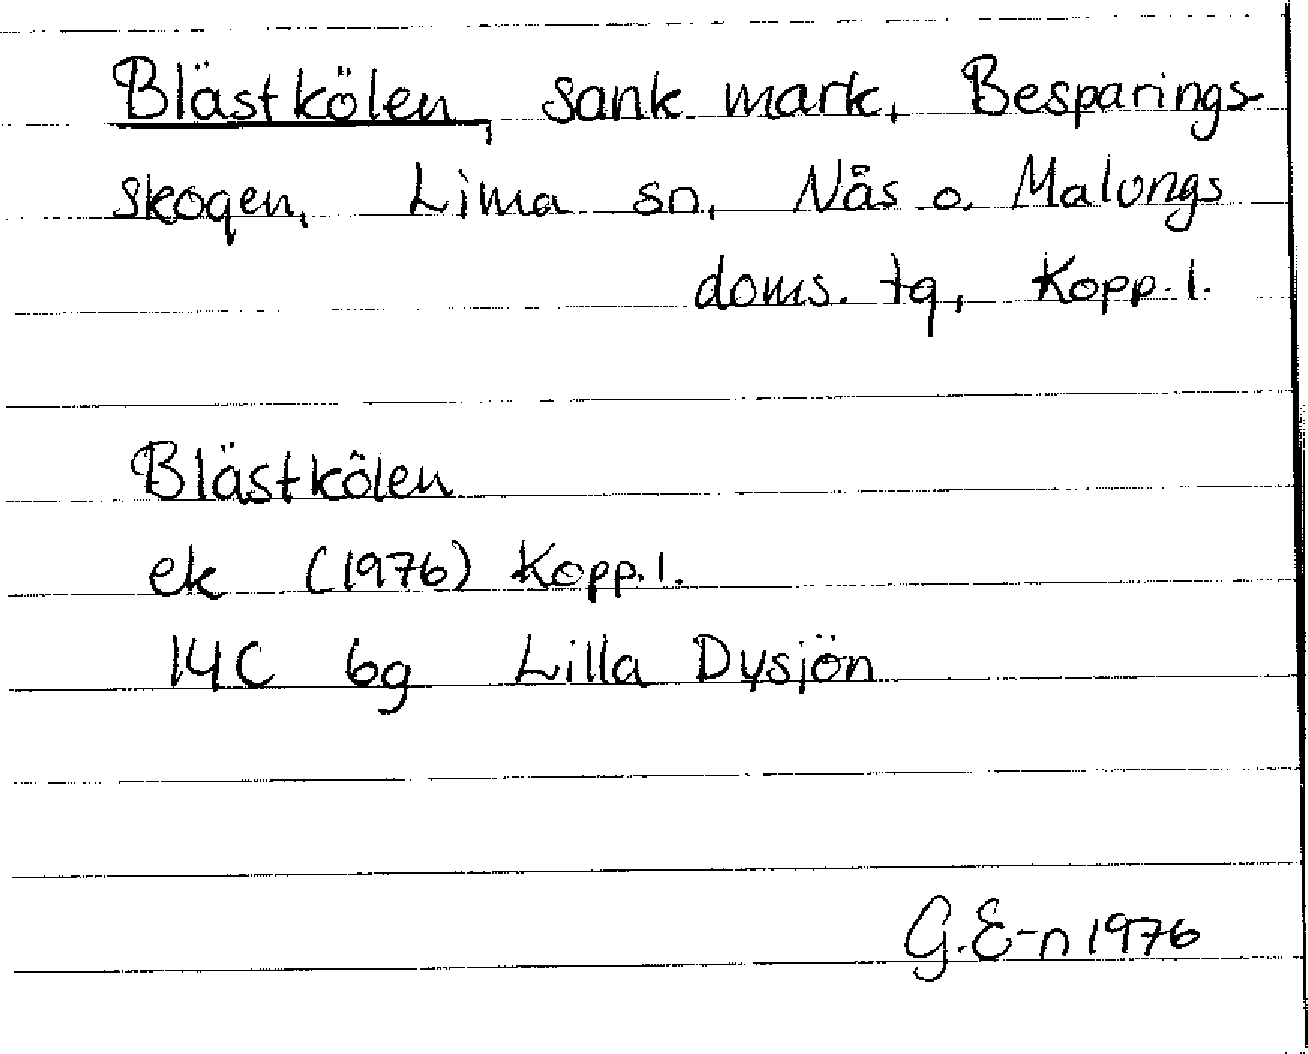 Blästkölen, sank mark, Besparings-
skogen, Lima sn, Nås o. Malungs
doms. tg, Kopp. l.
Blästkölen
ek (1976) Kopp. l.
14C 6g Lilla Dysjön
G.E-n 1976